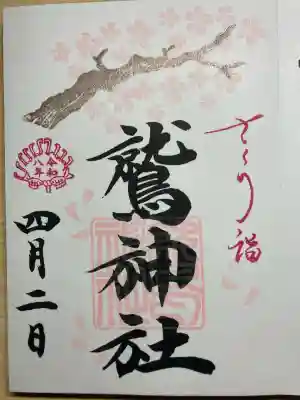 さくら詣
鷲神社
令和
八年
四月二日